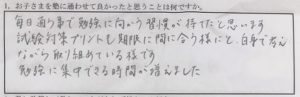 1. お子さまを塾に通わせて良かったと思うことは何ですか。
毎日通う事で勉強に向かう習慣が持てたと思います
試験対策プリントも期限に間に合う様にと、自分で考え
ながら取り組めている様です
勉強に集中できる時間が増えました